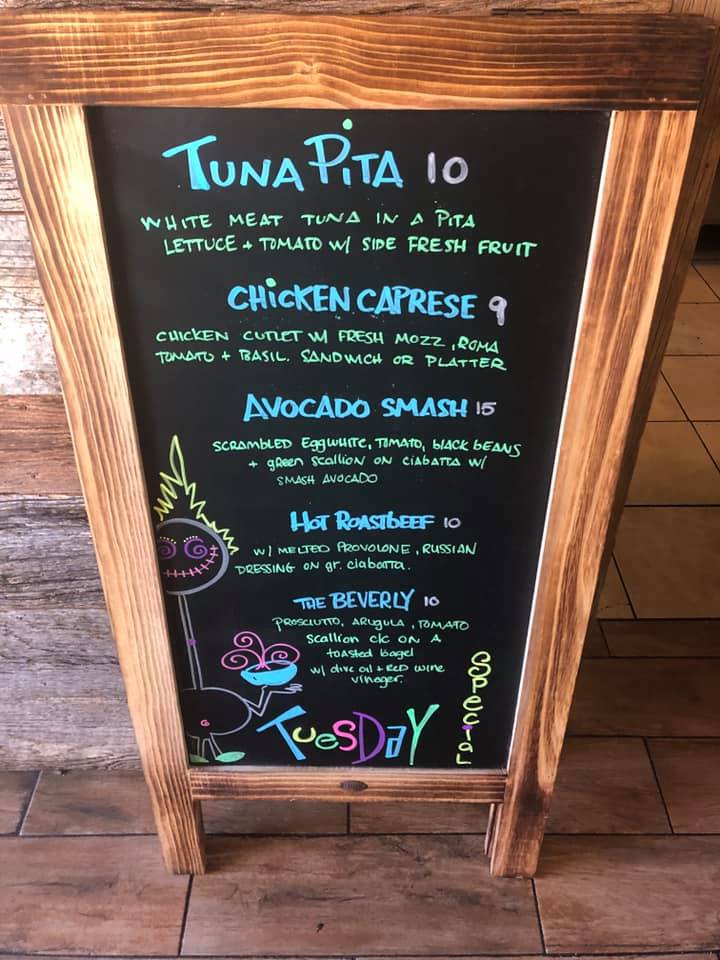 TUNA PiTA 10
WHITE MEAT TUNA IN A PITA
LETTUCE + TOMATO W/ SIDE FRESH FRUIT
CHiCKEN CAPRESE 9
CHICKEN CUTLET W/ FRESH MOZZ, ROMA
TOMATO + BASIL. SANDWICH OR PLATTER
AVOCADO SMASH 15
SCRAMBLED EggWHITE, TOMATO, blACK bEANS
+ gREEN SCALLION ON CIABATTA W/
SMASH AVOCADO
HOT ROASTbEEF 10
W/ MELTED PROVOLONE, RUSSIAN
DRESSING ON gr. ciabatta.
THE BEVERLY 10
PROSCIUTTO, ARUGULA, TOMATO
SCALLION c/c ON A
TOASTED bagel
W/ olive oil + RED wine
vinegar.
TuesDaY
SPeciaL